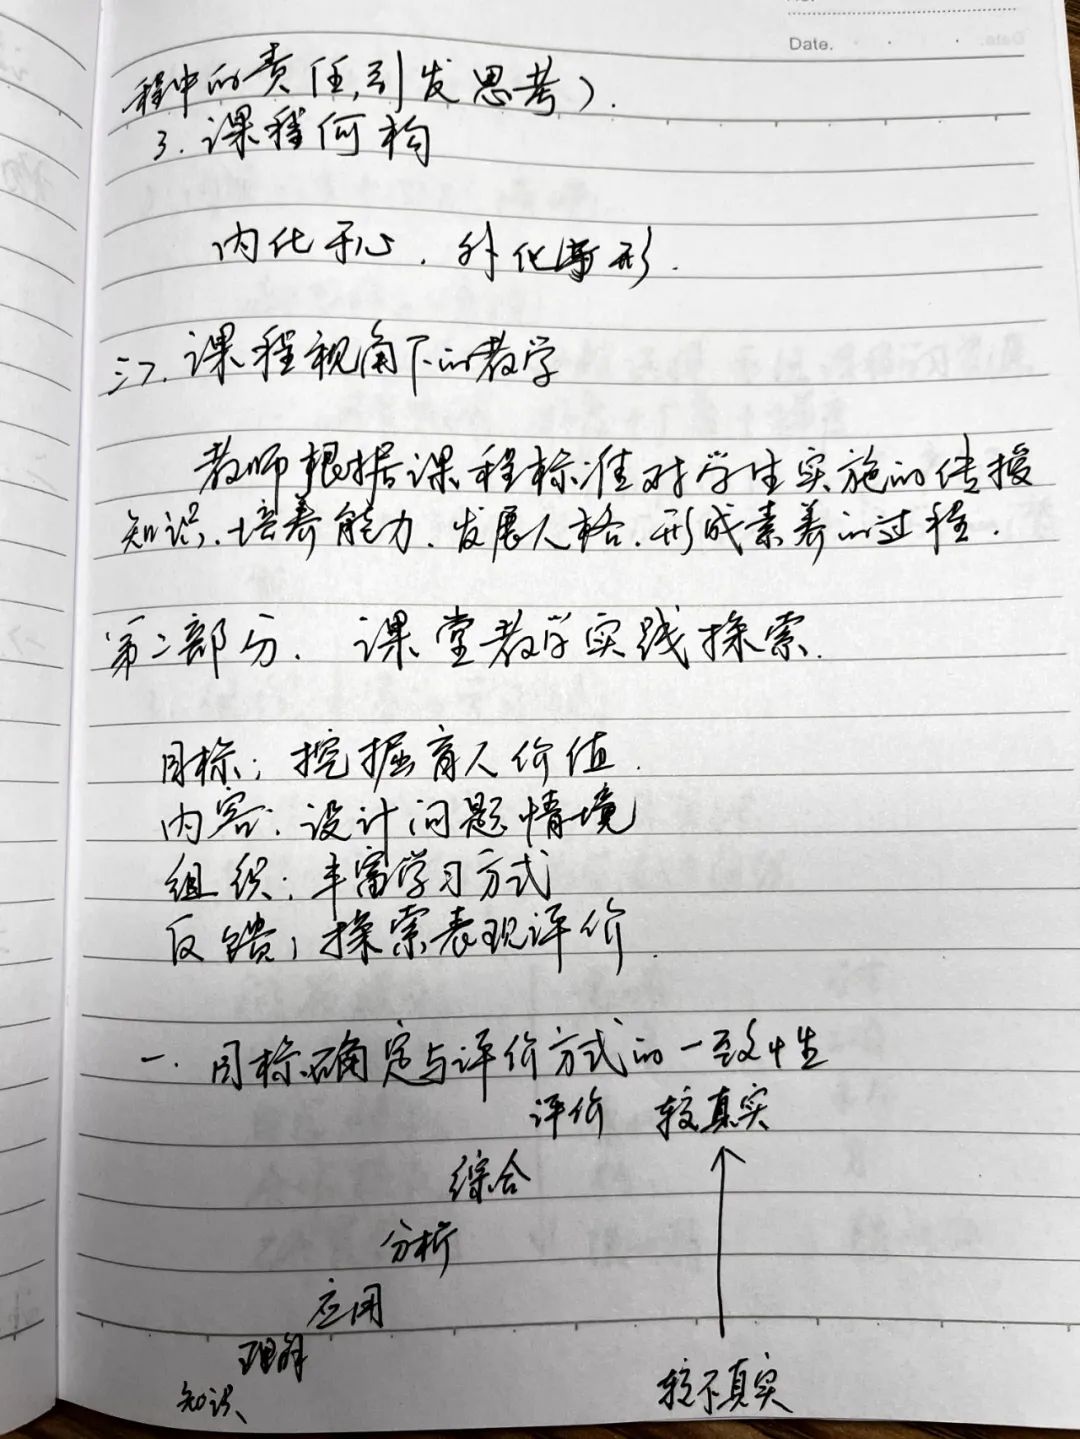 Date.
程中的责任,引发思考).
3. 课程何构
内化于心. 外化于形.
三、课程视角下的教学
教师根据课程标准对学生实施的传授
知识、培养能力、发展人格、形成素养的过程.
第二部分. 课堂教学实践探索.
目标: 挖掘育人价值.
内容: 设计问题情境
组织: 丰富学习方式
反馈: 探索表现评价.
一. 目标确定与评价方式的一致性
评价 较真实
综合
分析
应用
理解
知识 较不真实